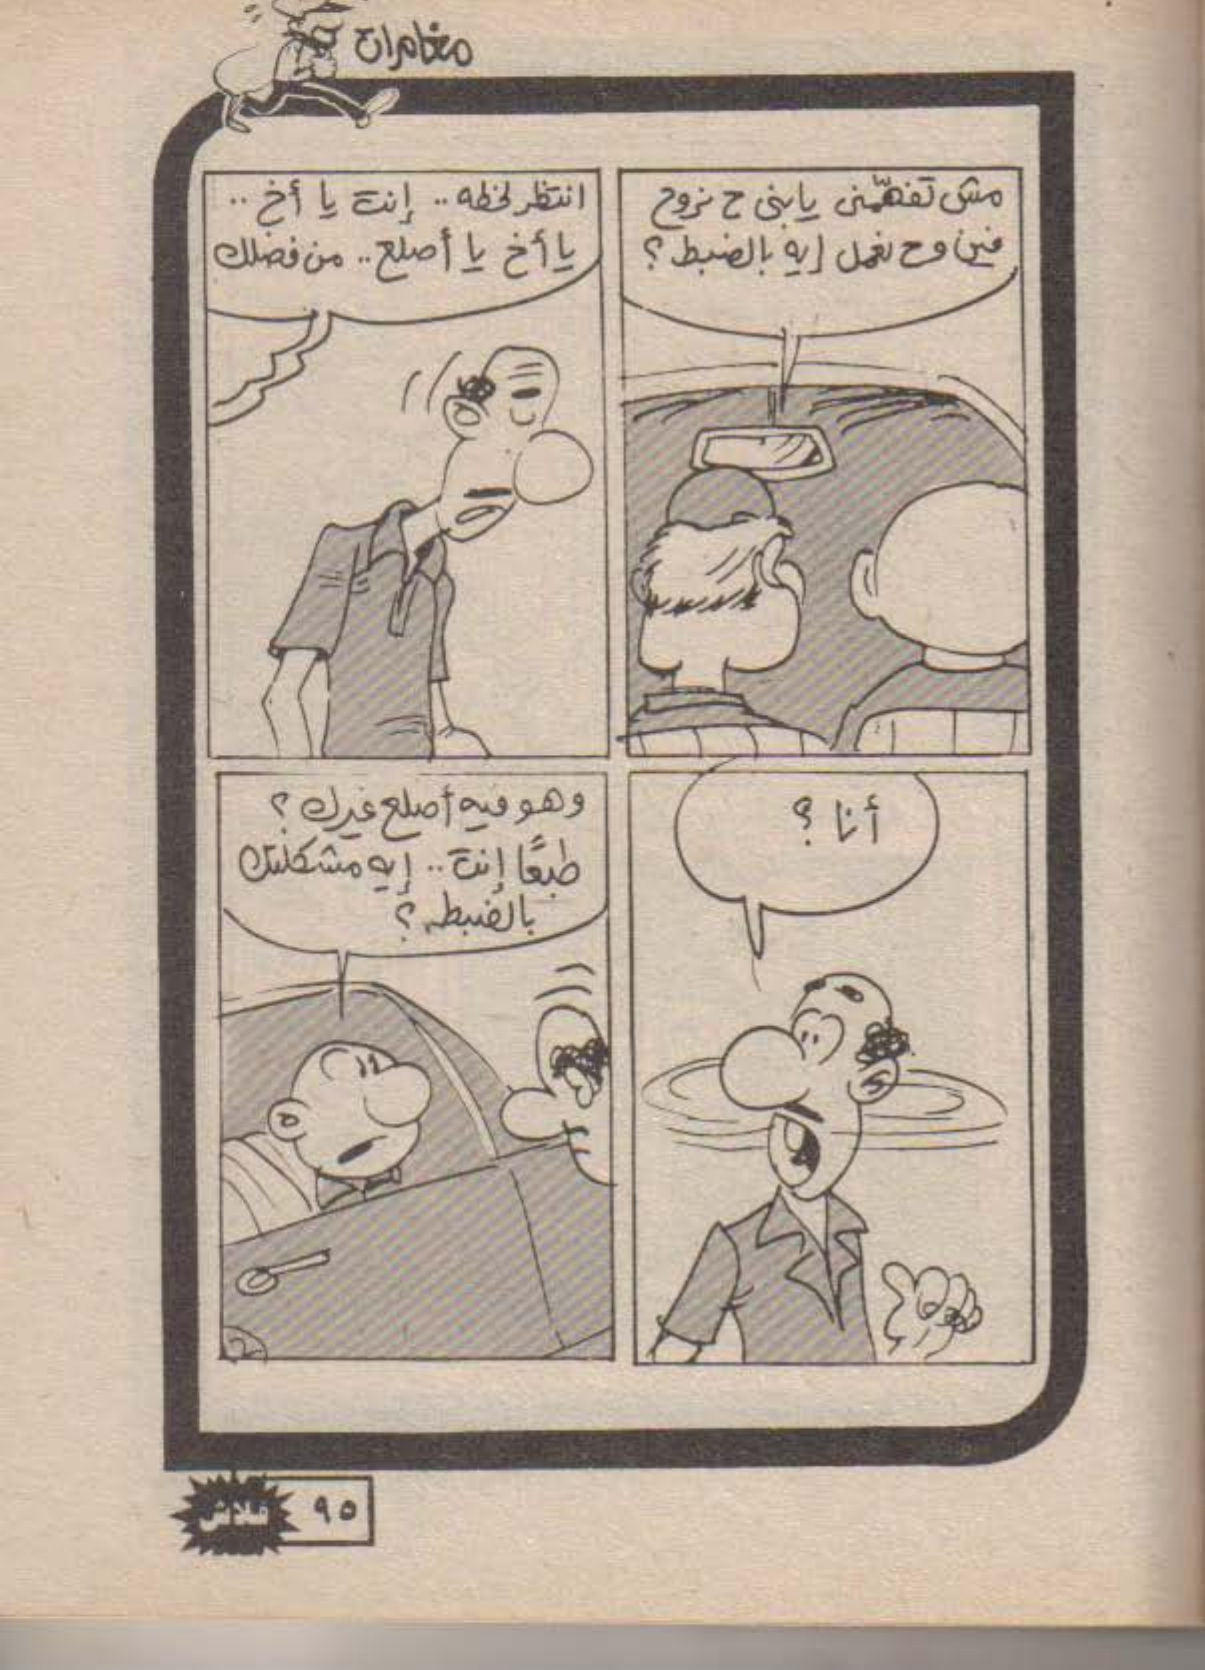 مغامرات
مش تفهّمنى يابنى ح نروح
فين وح نعمل إيه بالضبط؟
انتظر لحظه.. إنت يا أخ..
يا أخ يا أصلع.. من فضلك
أنا؟
وهو فيه أصلع غيرك؟
طبعًا إنت.. إيه مشكلتك
بالضبط؟
فلاش
٩٥